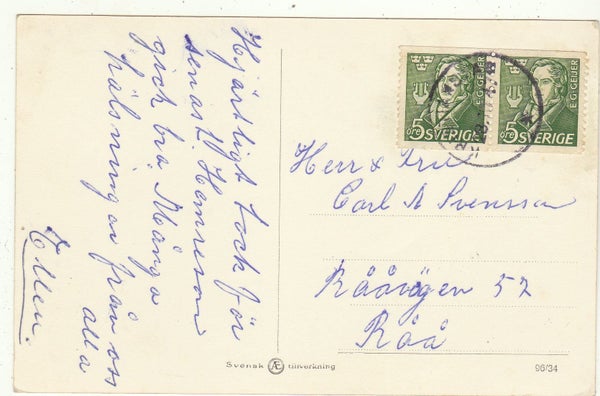 Hjärtligt tack för
senast. Hemresan
gick bra Många
hälsningar från oss
alla
Ellen.
E·G·GEIJER
5 öre SVERIGE
E·G·GEIJER
5 öre SVERIGE
Herr & Fru
Carl A Svensson
Rååvägen 52
Råå
Svensk Æ tillverkning
96/34